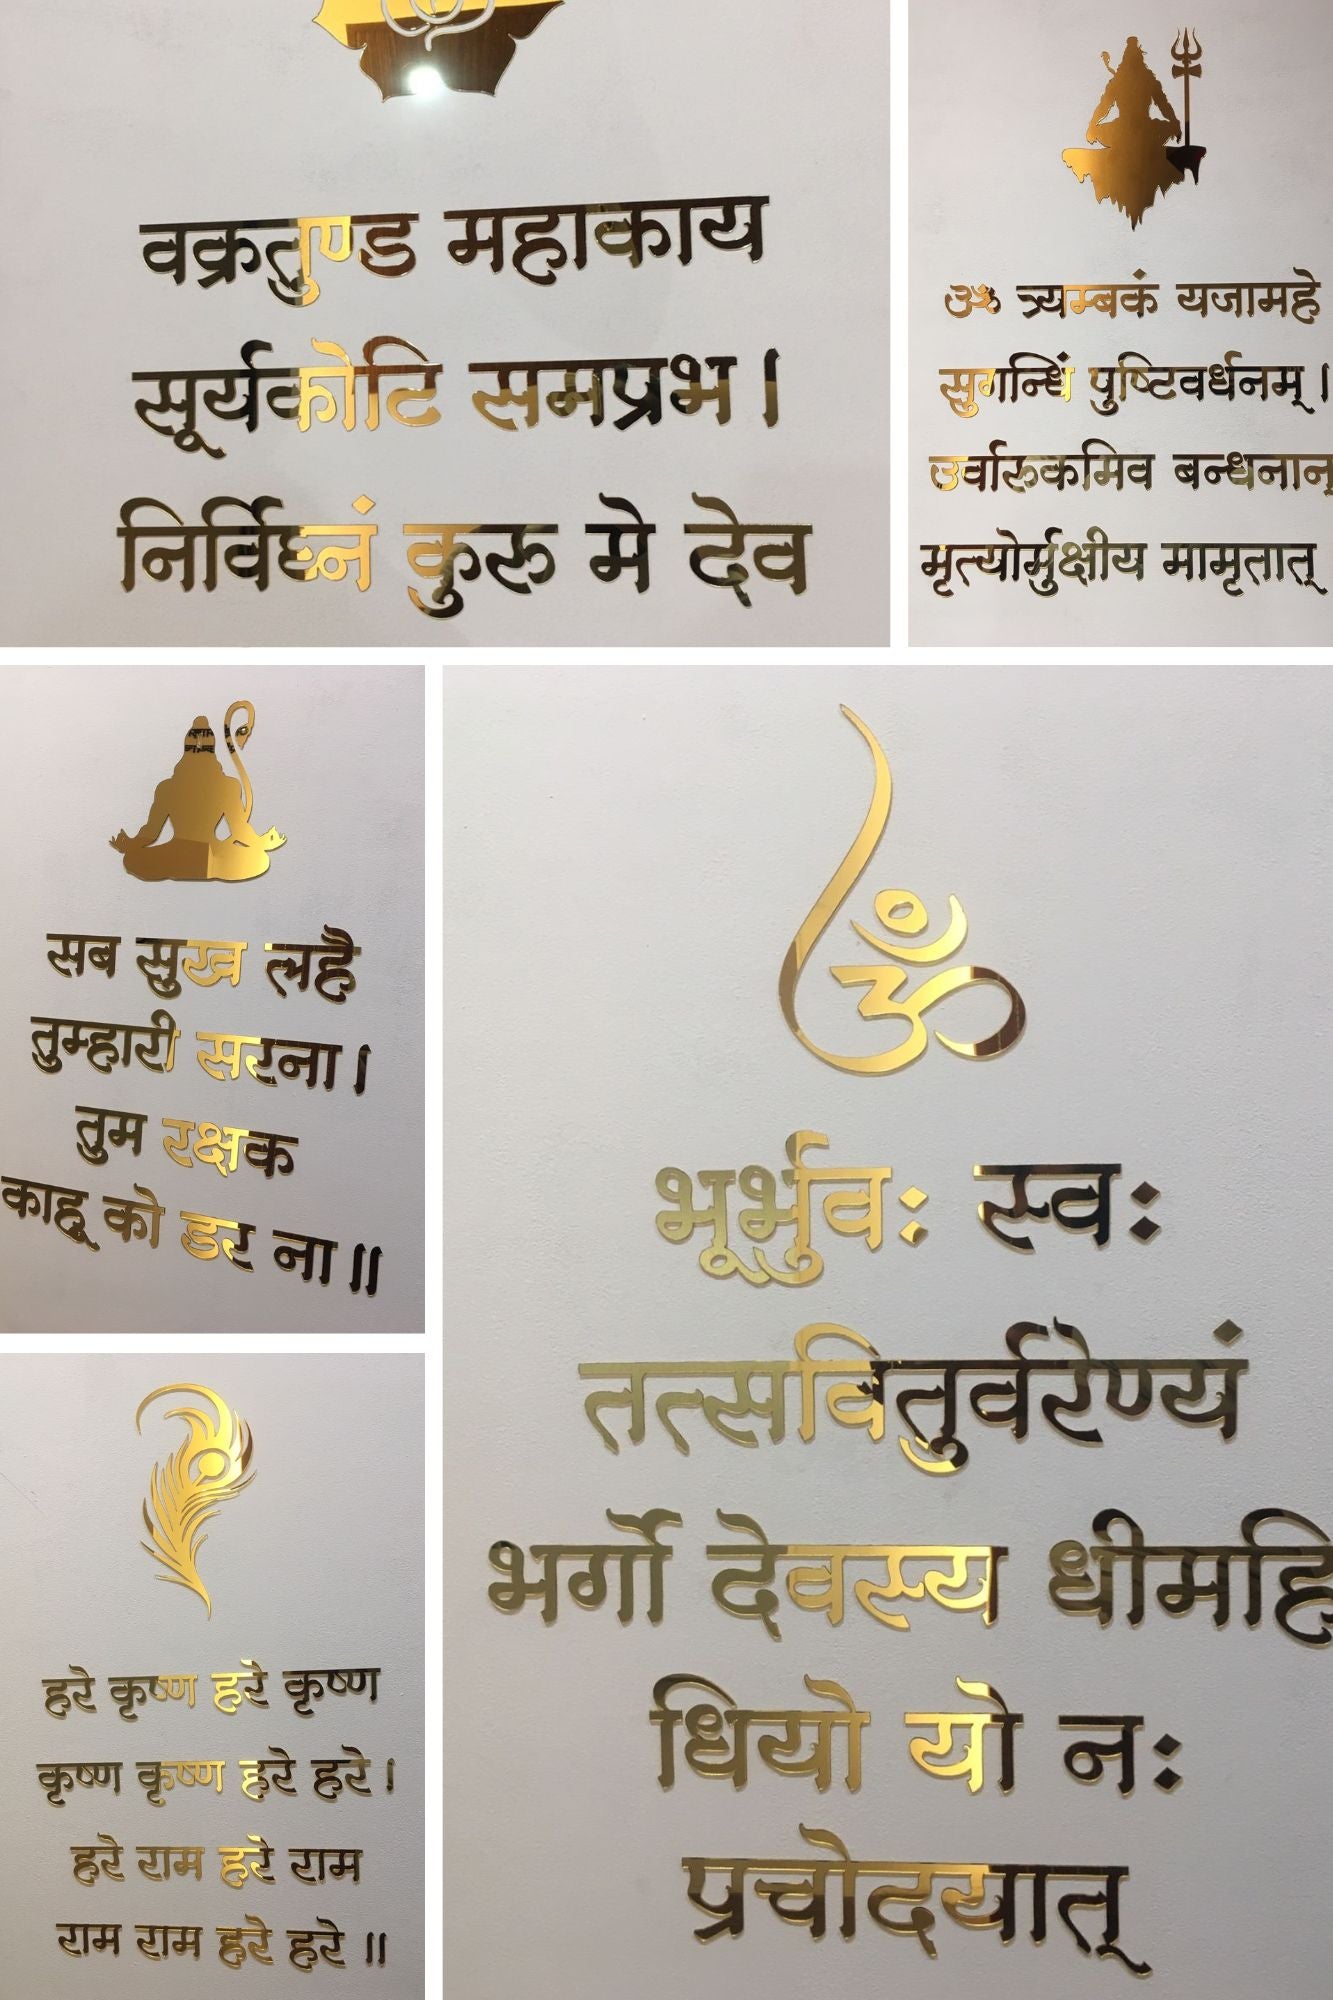 वक्रतुण्ड महाकाय
सूर्यकोटि समप्रभ।
निर्विघ्नं कुरु मे देव
ॐ त्र्यम्बकं यजामहे
सुगन्धिं पुष्टिवर्धनम्।
उर्वारुकमिव बन्धनान्
मृत्योर्मुक्षीय मामृतात्
सब सुख लहै
तुम्हारी सरना।
तुम रक्षक
काहू को डर ना॥
ॐ
भूर्भुवः स्वः
तत्सवितुर्वरेण्यं
भर्गो देवस्य धीमहि
धियो यो नः
प्रचोदयात्
हरे कृष्ण हरे कृष्ण
कृष्ण कृष्ण हरे हरे।
हरे राम हरे राम
राम राम हरे हरे॥